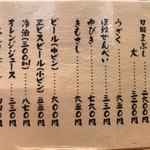 日田まぶし 二六〇〇円
大
うざく
ほねせんべい 三五〇円
ゆびき 七六〇円
きもさし 六五〇円
ビール(中ビン) 六〇〇円
ヱビスビール(小ビン) 五五〇円
冷酒(三〇〇ml) 八七〇円
オレンジジュース 三三〇円